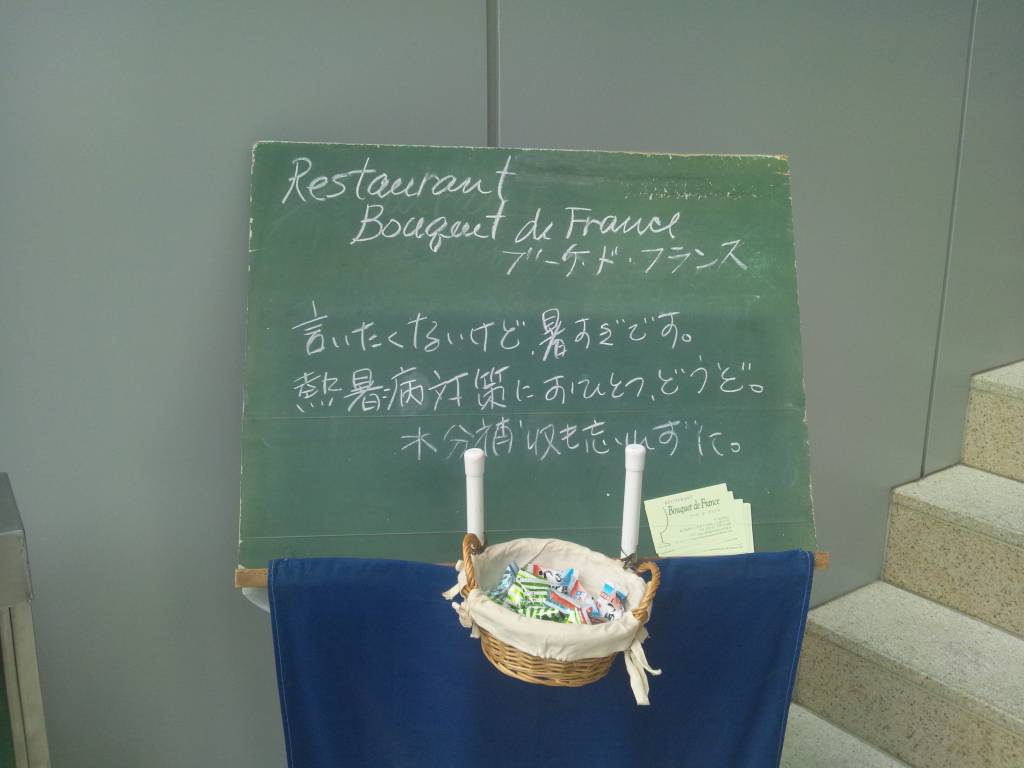 Restaurant
Bouquet de France
ブーケ・ド・フランス
言いたくないけど、暑すぎです。
熱暑病対策におひとつ、どうぞ。
水分補収も忘れずに。
RESTAURANT
Bouquet de France